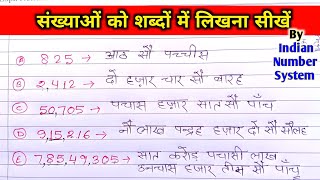 संख्याओं को शब्दों में लिखना सीखें
By
Indian
Number
System
A 825 → आठ सौ पच्चीस
B 2,412 → दो हज़ार चार सौ बारह
C 50,705 → पचास हज़ार सात सौ पाँच
D 9,15,216 → नौ लाख पन्द्रह हज़ार दो सौ सोलह
E 7,85,49,305 → सात करोड़ पचासी लाख
उनचास हज़ार तीन सौ पाँच